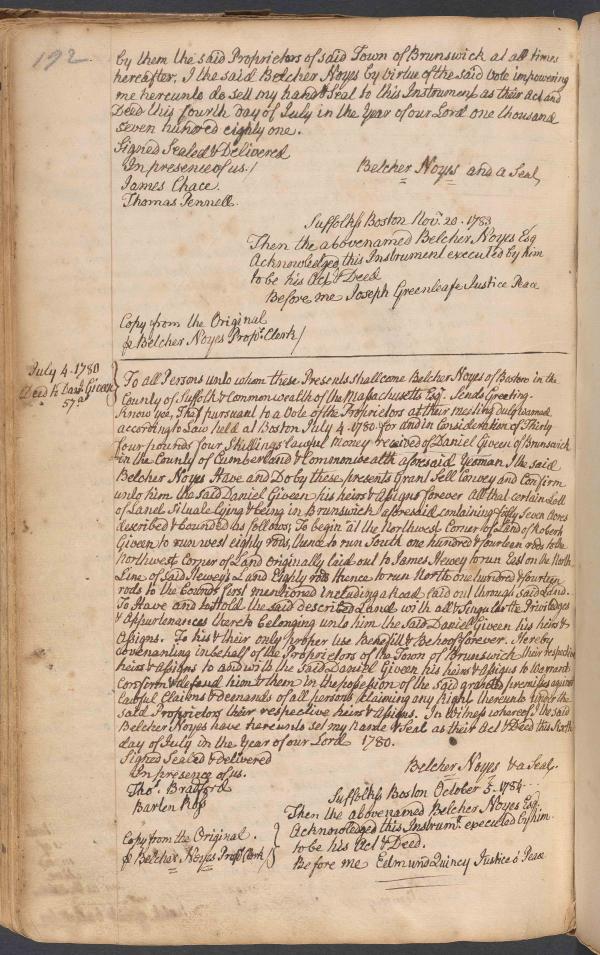 192.
by them the said Proprietors of said Town of Brunswick at all times
hereafter, I the said Belcher Noyes by virtue of the said Vote impowering
me hereunto do sell my hand & Seal to this Instrument as their Act and
Deed this fourth day of July in the Year of our Lord one thousand
seven hundred eighty one.
Signed Sealed & Delivered
In presence of us./
Belcher Noyes and a Seal,
James Chace.
Thomas Pennell.
Suffolk ss Boston Nov.r 20. 1783
Then the abovenamed Belcher Noyes Esq
Acknowledged this Instrument executed by him
to be his Act & Deed
Before me Joseph Greenleafe Justice Peace
Copy from the Original
p Belcher Noyes Prop.r Clerk/
July 4. 1780
Deed to Dan.l Giveen
57.a
To all Persons unto whom these Presents shall come Belcher Noyes of Boston in the
County of Suffolk & Commonwealth of the Massachusetts Esq.r Sends Greeting.
Know yea, That pursuant to a Vote of the Proprietors at their meeting duly warned
according to Law held at Boston July 4. 1780. for and in Consideration of Thirty
four pounds four Shillings lawful money received of Daniel Giveen of Brunswick
in the County of Cumberland & Commonwealth aforesaid Yeoman I the said
Belcher Noyes Have and Do by these presents Grant Sell Convey and Confirm
unto him the said Daniel Giveen his heirs & Assigns forever All that certain Lott
of Land Situate lying & being in Brunswick aforesaid containing fifty Seven Acres
described & bounded as follows, To begin at the Northwest Corner of Land of Robert
Giveen to run west eighty rods, thence to run South one hundred & fourteen rods to the
Northwest Corner of Land originally laid out to James Hewey to run East on the North
Line of said Hewey's Land Eighty rods thence to run North one hundred & fourteen
rods to the bounds first mentioned including a road laid out through said Land.
To Have and to Hold the said described Land with all & Singular the Priviledges
& Appurtenances thereto belonging unto him the said Daniell Giveen his heirs &
Assigns. To his & their only proper use Benefit & Behoof forever. Hereby
covenanting in behalf of the Proprietors of the Town of Brunswick their respective
heirs & Assigns to and with the Said Daniel Giveen his heirs & Assigns to Warrant
Confirm & defend him & them in the possession of the Said granted premisses against
lawful Claims & demands of all persons claiming any Right thereunto under the
said Proprietors their respective heirs & Assigns. In Witness whereof the said
Belcher Noyes have hereunto set my hand & Seal as their Act & Deed this fourth
day of July in the Year of our Lord 1780.
Signed Sealed & delivered
In presence of us.
Belcher Noyes & a Seal.
Tho.s Bradford
Suffolk ss Boston October 5. 1784.
Then the abovenamed Belcher Noyes Esq.
Acknowledged this Instrum.t executed by him
to be his Act & Deed.
Before me Edmund Quincy Justice o' Peace
Copy from the Original.
p Belcher Noyes Prop.r Clerk/